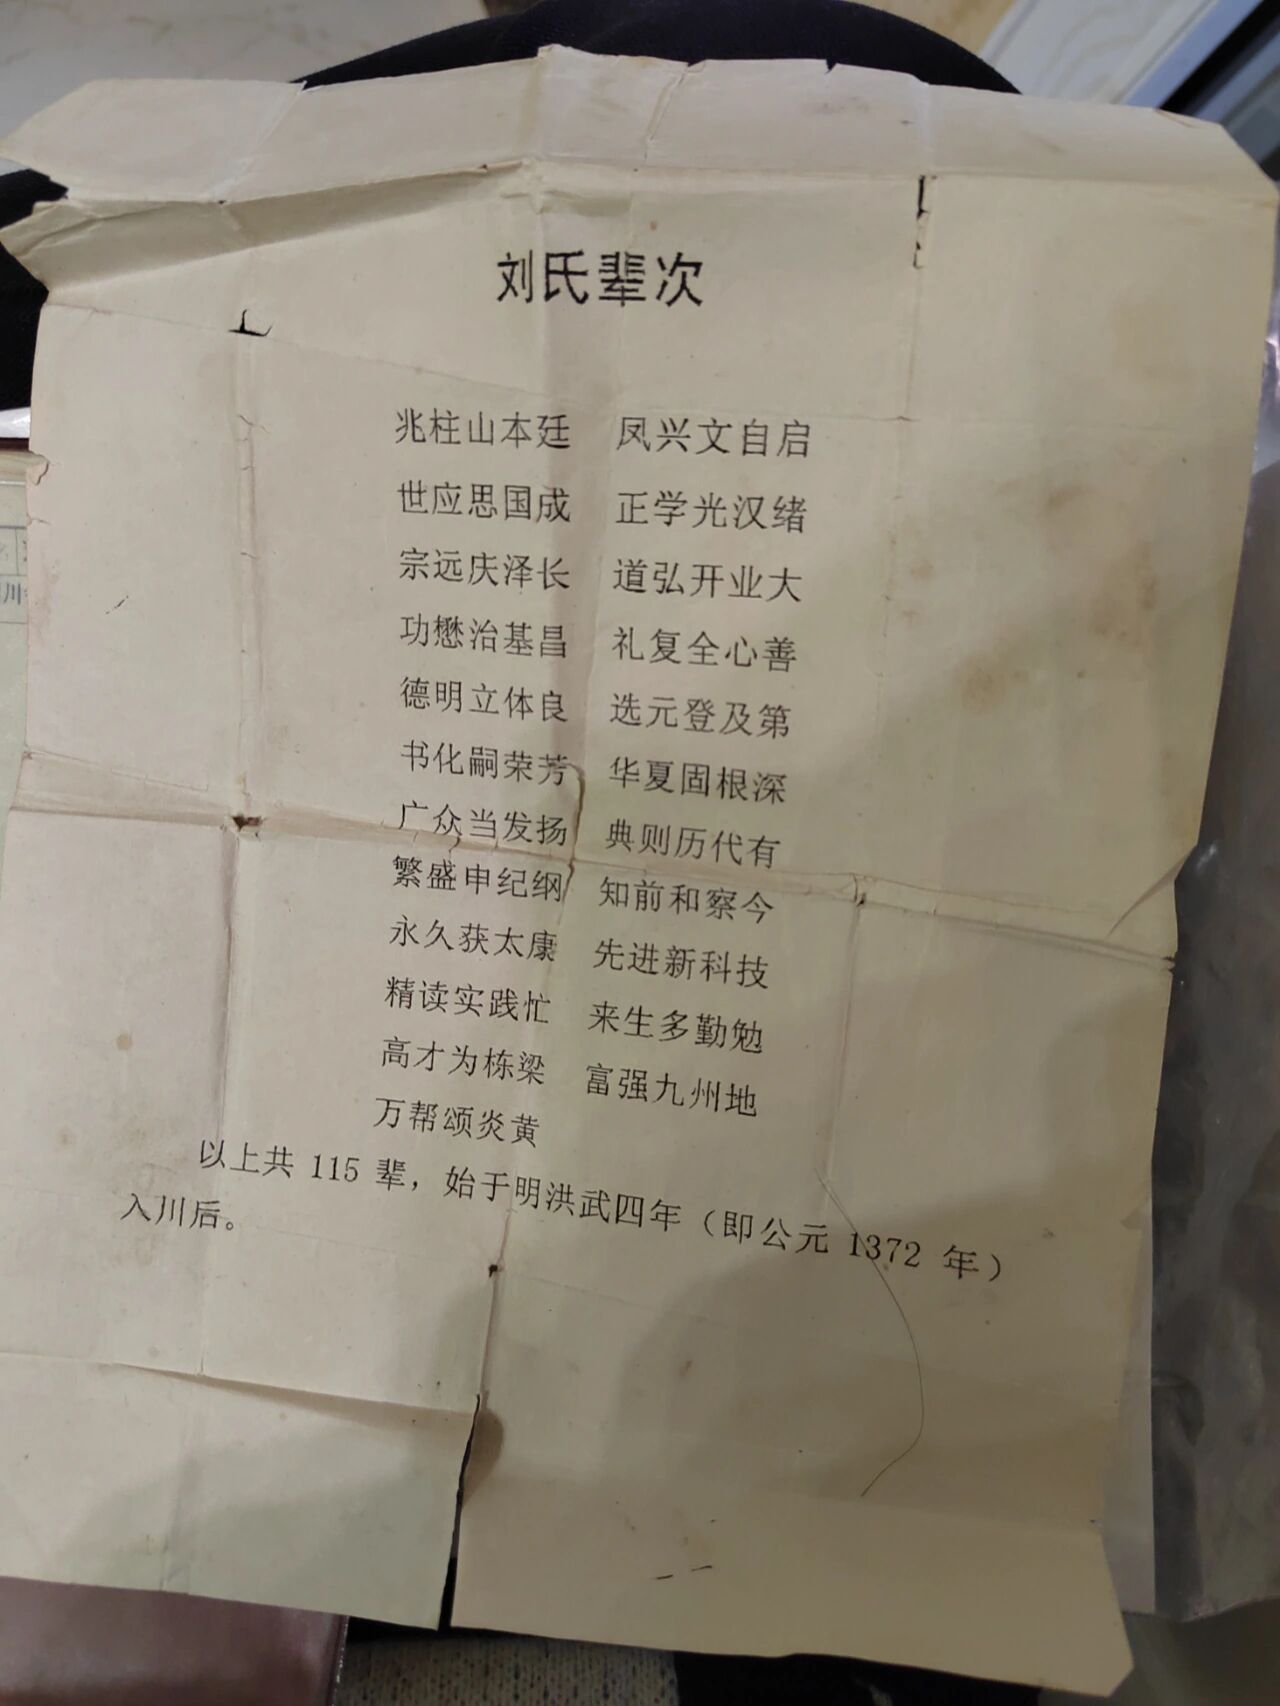 刘氏辈次
兆柱山本廷 凤兴文自启
世应思国成 正学光汉绪
宗远庆泽长 道弘开业大
功懋治基昌 礼复全心善
德明立体良 选元登及第
书化嗣荣芳 华夏固根深
广众当发扬 典则历代有
繁盛申纪纲 知前和察今
永久获太康 先进新科技
精读实践忙 来生多勤勉
高才为栋梁 富强九州地
万帮颂炎黄
以上共 115 辈，始于明洪武四年（即公元 1372 年）
入川后。